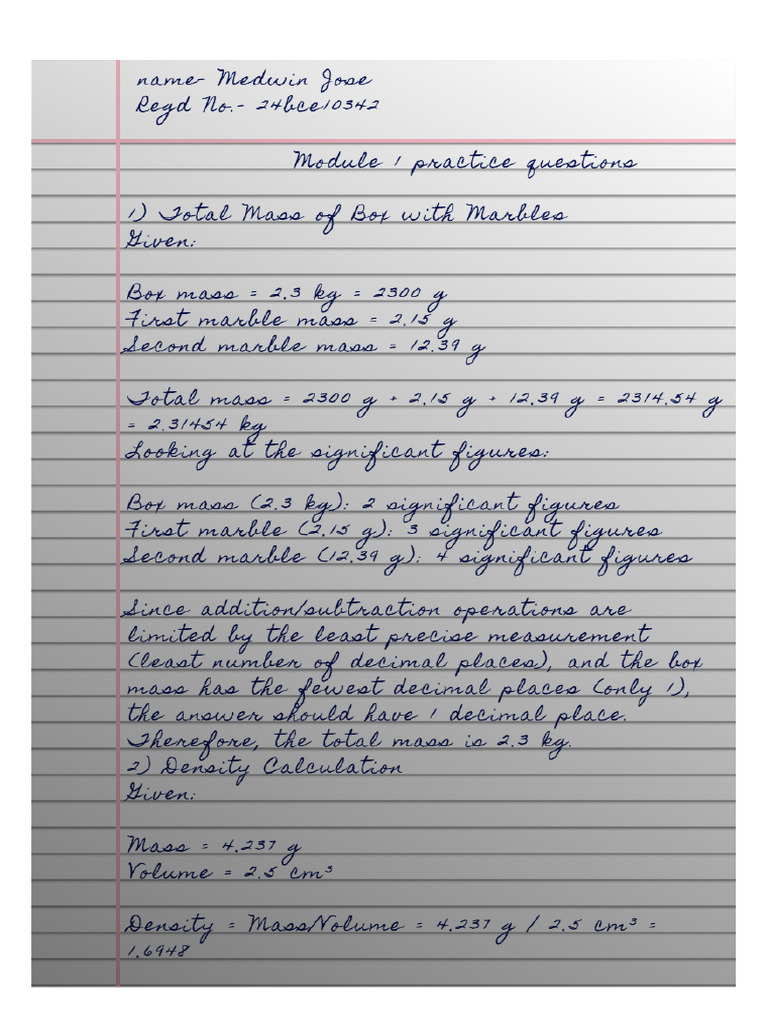 name- Medwin Jose
Regd No.- 24bce10342
Module 1 practice questions
1) Total Mass of Box with Marbles
Given:
Box mass = 2.3 kg = 2300 g
First marble mass = 2.15 g
Second marble mass = 12.39 g
Total mass = 2300 g + 2.15 g + 12.39 g = 2314.54 g
= 2.31454 kg
Looking at the significant figures:
Box mass (2.3 kg): 2 significant figures
First marble (2.15 g): 3 significant figures
Second marble (12.39 g): 4 significant figures
Since addition/subtraction operations are
limited by the least precise measurement
(least number of decimal places), and the box
mass has the fewest decimal places (only 1),
the answer should have 1 decimal place.
Therefore, the total mass is 2.3 kg.
2) Density Calculation
Given:
Mass = 4.237 g
Volume = 2.5 cm³
Density = Mass/Volume = 4.237 g / 2.5 cm³ =
1.6948